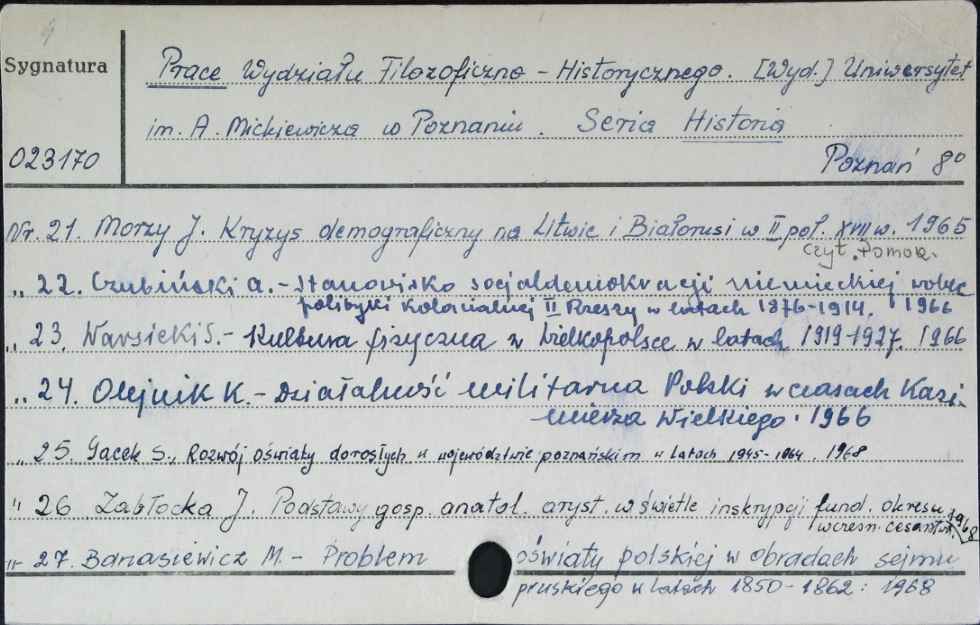 Sygnatura
Prace Wydziału Filozoficzno - Historycznego. [Wyd.] Uniwersytet
im. A. Mickiewicza w Poznaniu. Seria Historia
023170
Poznań 8°
Nr. 21. Morzy J. Kryzys demograficzny na Litwie i Białorusi w II poł. XVII w. 1965
czyt. Pomoc.
„ 22. Czubiński A. - Stanowisko socjaldemokracji niemieckiej wobec
polityki kolonialnej II Rzeszy w latach 1876-1914. 1966
„ 23. Warsicki S. - Kultura fizyczna w Wielkopolsce w latach 1919-1927. 1966
„ 24. Olejnik K. - Działalność militarna Polski w czasach Kazi-
mierza Wielkiego. 1966
„ 25. Gacek S., Rozwój oświaty dorosłych w województwie poznańskim w latach 1945-1964. 1968
" 26 Zabłocka J. Podstawy gosp. anatol. aryst. w świetle inskrypcji fund. okresu
wczesn. cesarstw. 1968
" 27. Banasiewicz M. - Problem oświaty polskiej w obradach sejmu
pruskiego w latach 1850-1862: 1968